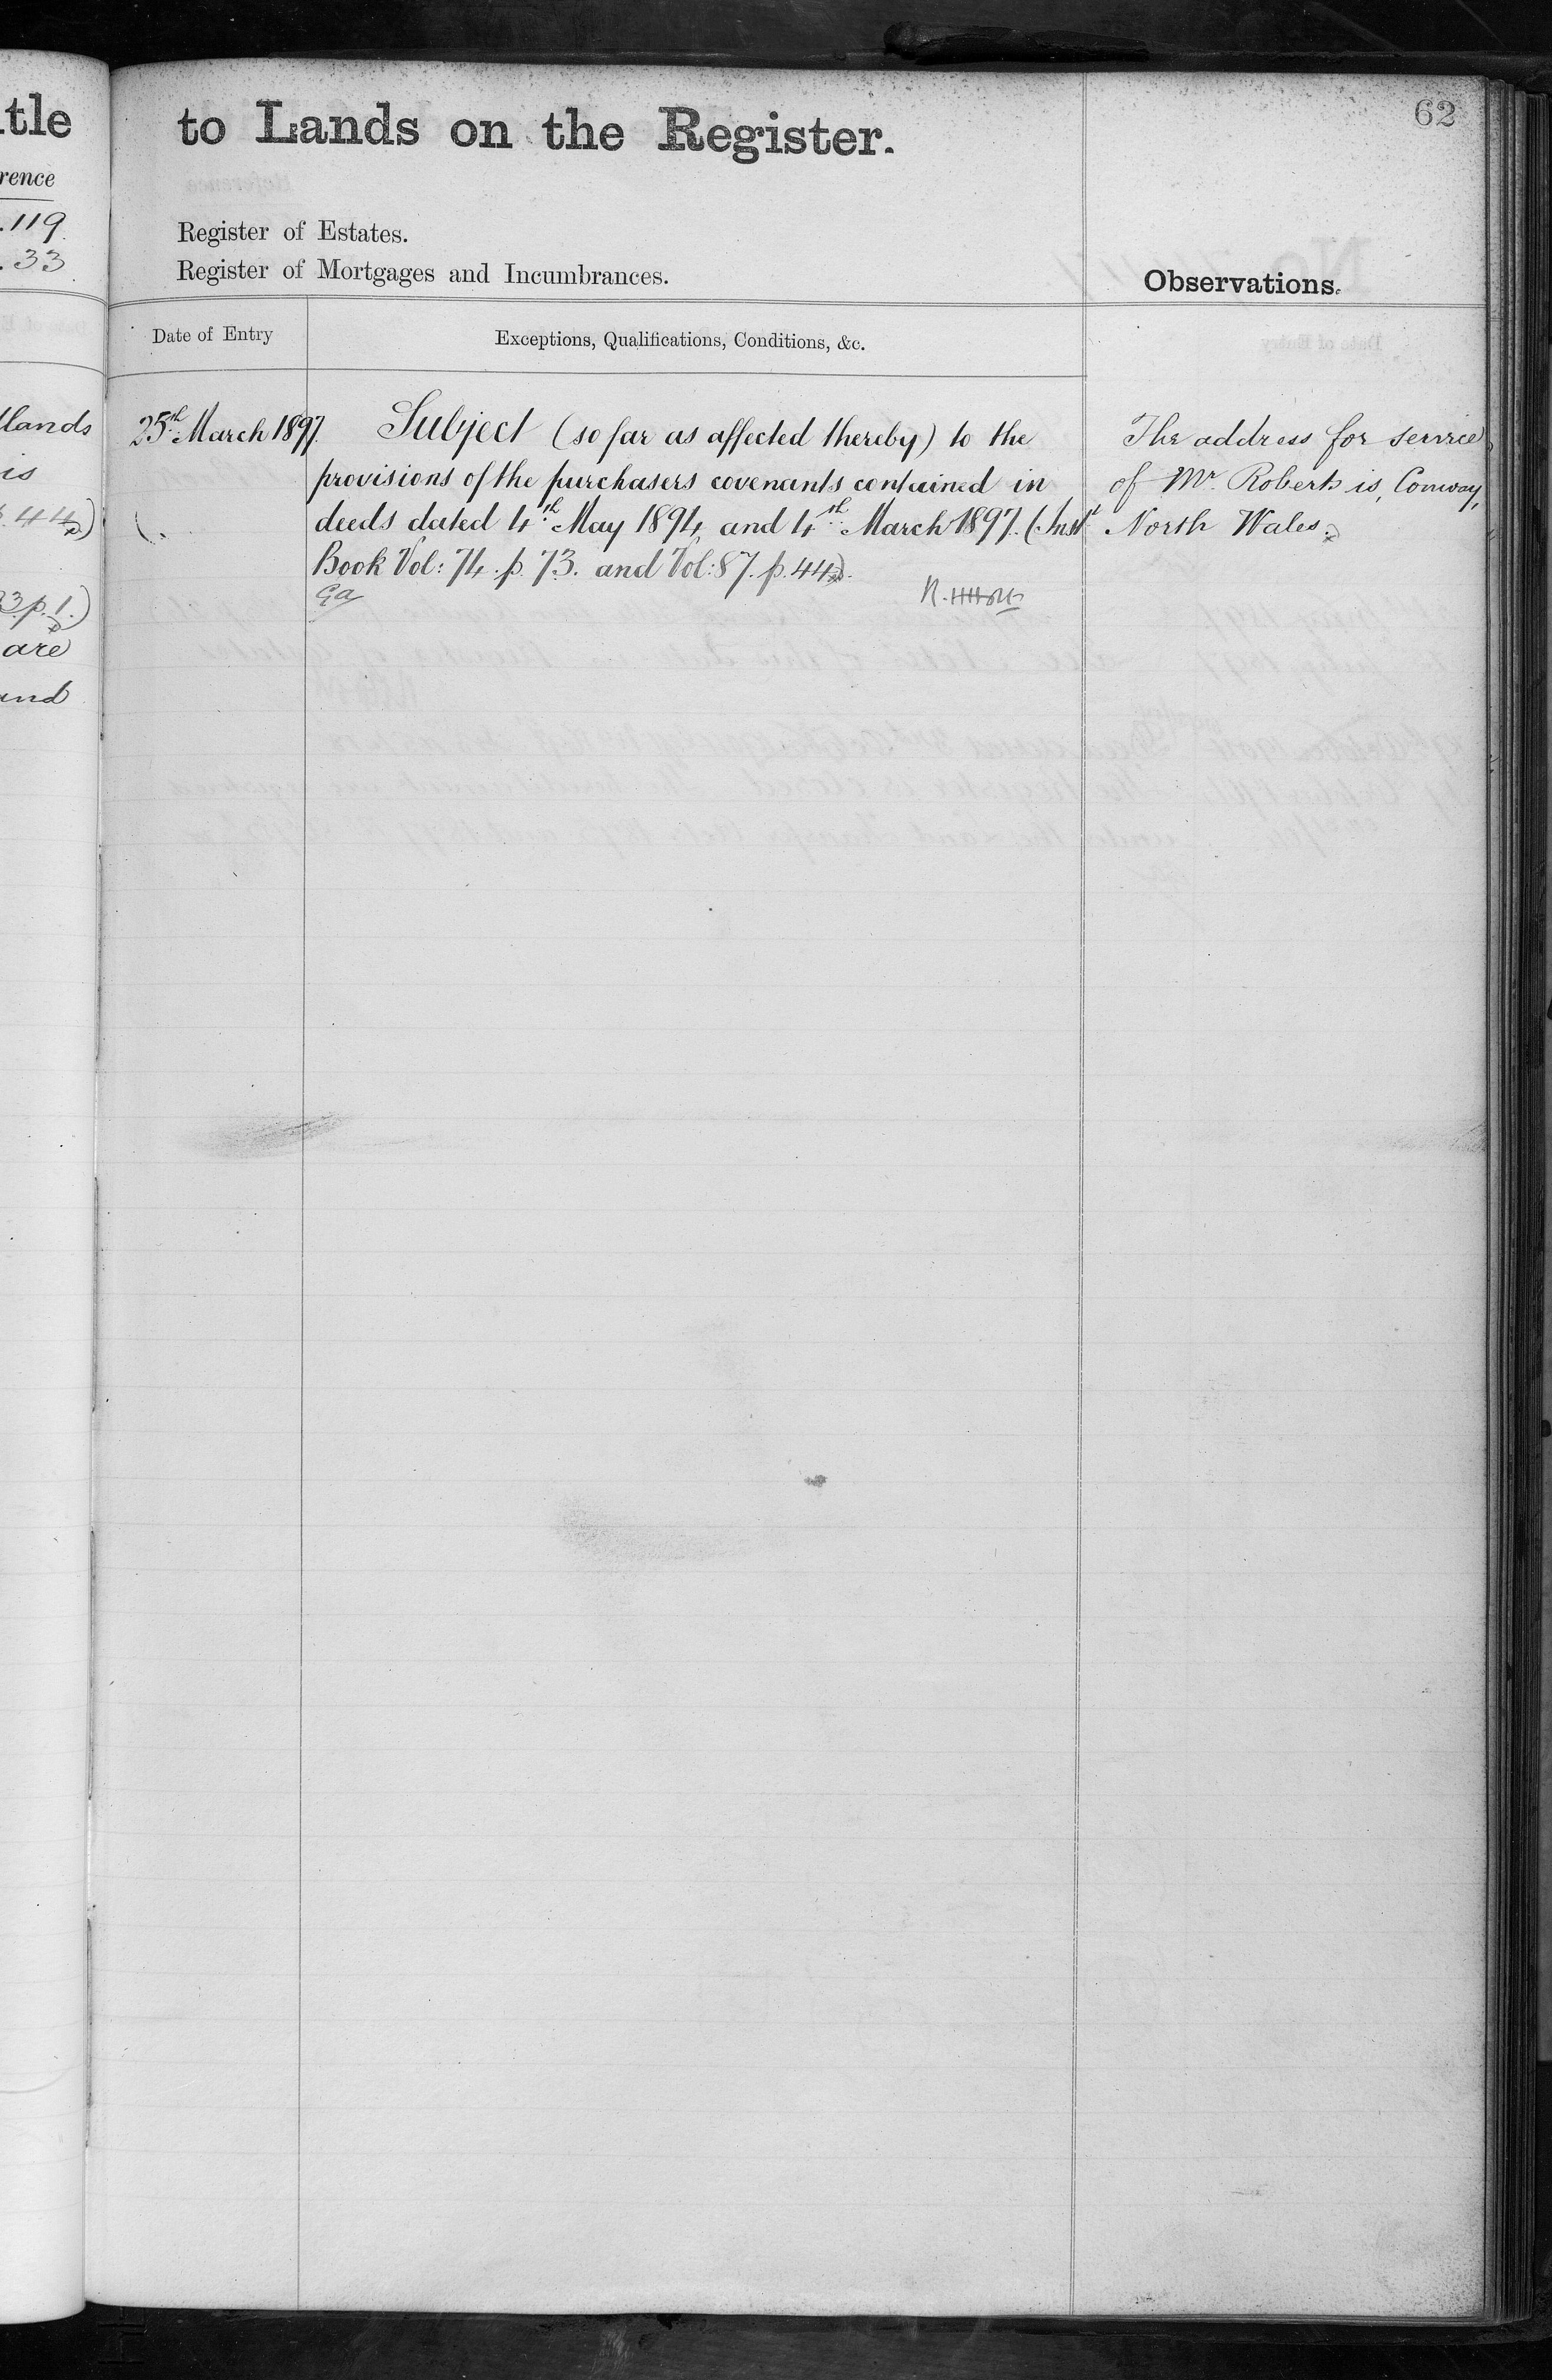 tle
rence
.119.
.33
tlands
is
p.44)
3.p.1.)
are
and
62
to Lands on the Register.
Register of Estates.
Register of Mortgages and Incumbrances.
Observations.
Date of Entry
Exceptions, Qualifications, Conditions, &c.
25th March 1897.
Subject (so far as affected thereby) to the
provisions of the purchasers covenants contained in
deeds dated 4th May 1894, and 4th March 1897. (Inst
Book Vol: 74. p. 73. and Vol: 87. p. 44).
The address for service
of Mr. Roberts is, Conway,
North Wales.